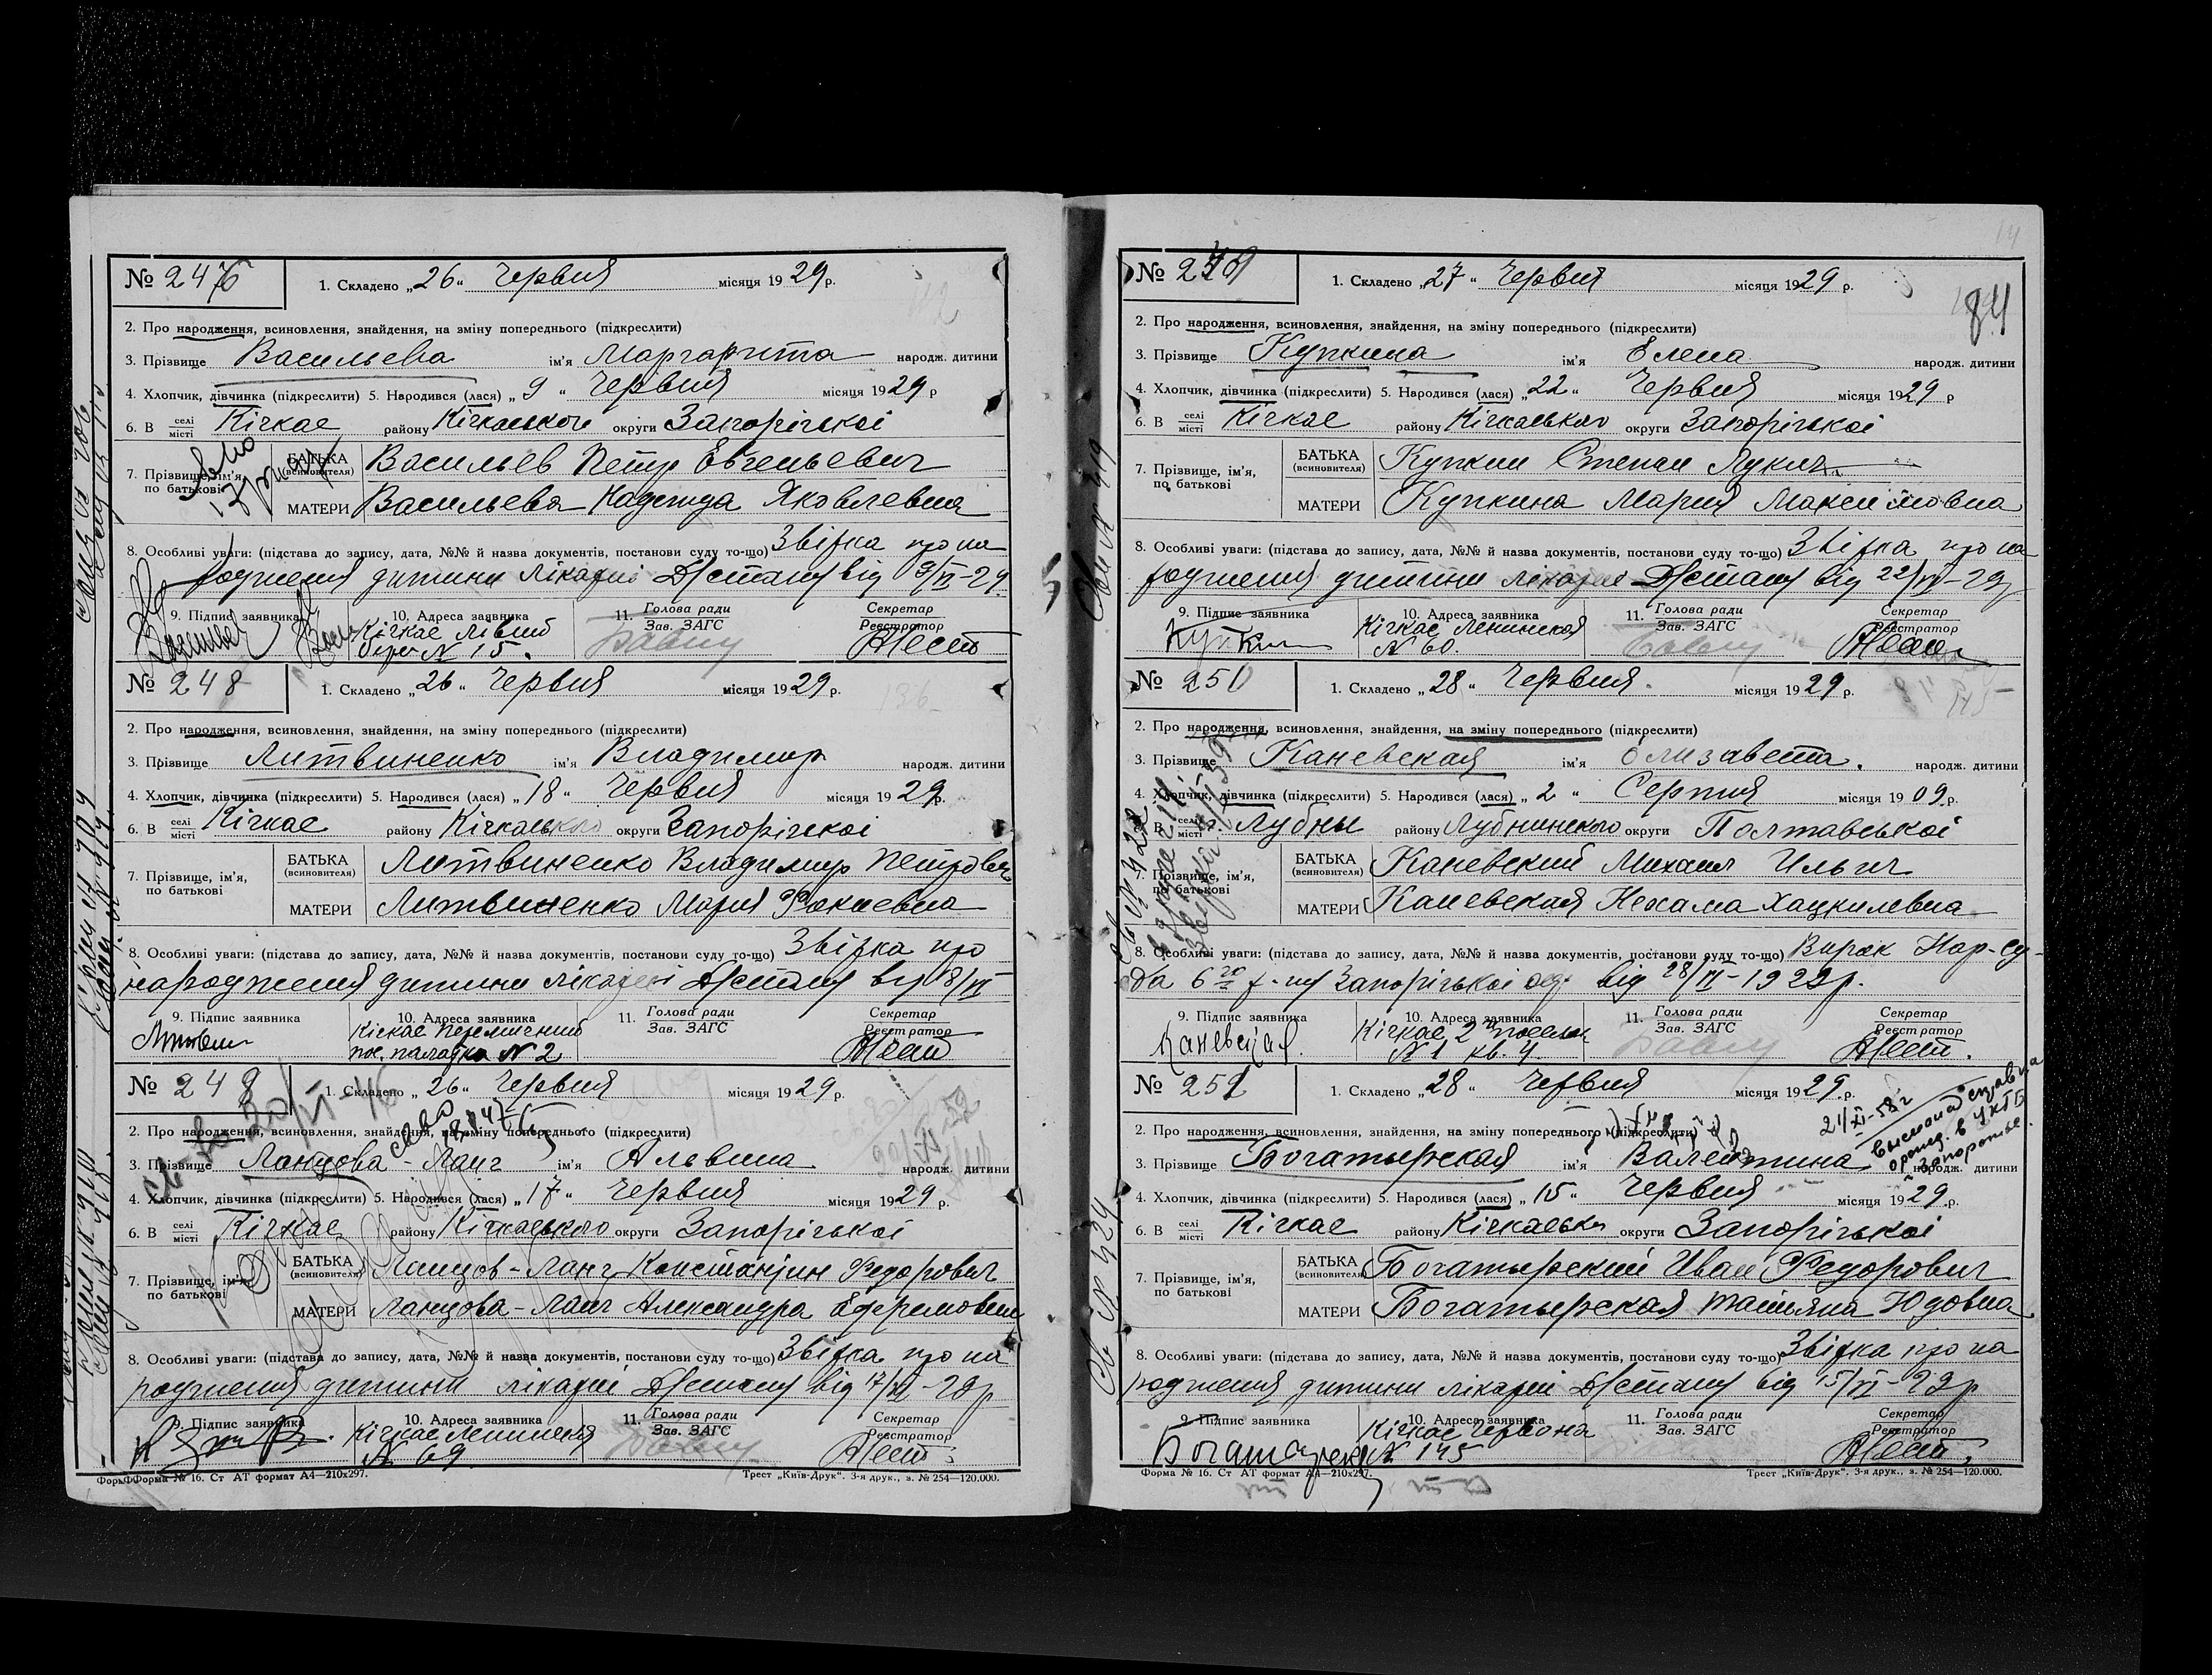 № 246
1. Складено „26“ Червня місяця 1929 р.
2. Про народження, всиновлення, знайдення, на зміну попереднього (підкреслити)
3. Прізвище Васильева ім'я Маргарита народж. дитини
4. Хлопчик, дівчинка (підкреслити) 5. Народився (лася) „9“ Червня місяця 1929 р
6. В селі місті Кічкас району Кічкаського округи Запорізької
7. Прізвище, ім'я, по батькові
БАТЬКА (всиновителя) Васильев Петр Евгеньевич
МАТЕРИ Васильева Надежда Яковлевна
8. Особливі уваги: (підстава до запису, дата, №№ й назва документів, постанови суду то-що) Звістка про на
родження дитини лікарні Дністану від 9/VI-29
9. Підпис заявника 10. Адреса заявника 11. Голова ради Зав. ЗАГС Секретар Реєстратор
Кічкас лівий
берег № 15.
№ 248
1. Складено „26“ Червня місяця 1929 р.
2. Про народження, всиновлення, знайдення, на зміну попереднього (підкреслити)
3. Прізвище Литвиненко ім'я Владимир народж. дитини
4. Хлопчик, дівчинка (підкреслити) 5. Народився (лася) „18“ Червня місяця 1929 р.
6. В селі місті Кічкас району Кічкаського округи Запорізької
7. Прізвище, ім'я, по батькові
БАТЬКА (всиновителя) Литвиненко Владимир Петрович
МАТЕРИ Литвиненко Мария Фокиевна
8. Особливі уваги: (підстава до запису, дата, №№ й назва документів, постанови суду то-що) Звістка про
народження дитини лікарні Дністану від 18/VI
9. Підпис заявника 10. Адреса заявника 11. Голова ради Зав. ЗАГС Секретар Реєстратор
Литвин
Кічкас
пос. палатка № 2
№ 249
1. Складено „26“ Червня місяця 1929 р.
2. Про народження, всиновлення, знайдення, на зміну попереднього (підкреслити)
3. Прізвище Ланцова-Ланг ім'я Альвина народж. дитини
4. Хлопчик, дівчинка (підкреслити) 5. Народився (лася) „17“ Червня місяця 1929 р.
6. В селі місті Кічкас району Кічкаського округи Запорізької
7. Прізвище, ім'я, по батькові
БАТЬКА (всиновителя) Ланцов-Ланг Константин Федорович
МАТЕРИ Ланцова-Ланг Александра Ефремовна
8. Особливі уваги: (підстава до запису, дата, №№ й назва документів, постанови суду то-що) Звістка про на
родження дитини лікарні Дністану від 17/VI-29 р
9. Підпис заявника 10. Адреса заявника 11. Голова ради Зав. ЗАГС Секретар Реєстратор
Кічкас Ленинская
№ 69
Форма № 16. Ст АТ формат А4—210х297. Трест „Київ-Друк“. 3-я друк., з. № 254—120.000.
84
№
1. Складено „27“ Червня місяця 1929 р.
2. Про народження, всиновлення, знайдення, на зміну попереднього (підкреслити)
3. Прізвище Купкина ім'я Елена народж. дитини
4. Хлопчик, дівчинка (підкреслити) 5. Народився (лася) „22“ Червня місяця 1929 р
6. В селі місті Кічкас району Кічкаського округи Запорізької
7. Прізвище, ім'я, по батькові
БАТЬКА (всиновителя) Купкин Степан Лукич
МАТЕРИ Купкина Мария Максимовна
8. Особливі уваги: (підстава до запису, дата, №№ й назва документів, постанови суду то-що) Звістка про на
родження дитини лікарні Дністану від 22/VI-29 р
9. Підпис заявника 10. Адреса заявника 11. Голова ради Зав. ЗАГС Секретар Реєстратор
Купкин
Кічкас Ленинская
№ 60.
№ 250
1. Складено „28“ Червня. місяця 1929 р.
2. Про народження, всиновлення, знайдення, на зміну попереднього (підкреслити)
3. Прізвище Каневская ім'я Елизавета. народж. дитини
4. Хлопчик, дівчинка (підкреслити) 5. Народився (лася) „2“ Серпня місяця 1909 р.
6. В селі місті Лубны району Лубнинського округи Полтавської
7. Прізвище, ім'я, по батькові
БАТЬКА (всиновителя) Каневский Михаил Ильич
МАТЕРИ Каневская Нехама Хацкилевна
8. Особливі уваги: (підстава до запису, дата, №№ й назва документів, постанови суду то-що) Вирок Нар-су-
да 6го Запорізької окр. від 28/VI-1929 р.
9. Підпис заявника 10. Адреса заявника 11. Голова ради Зав. ЗАГС Секретар Реєстратор
Каневская.
Кічкас 2й поселок
№ 1 кв. 4.
№ 251
1. Складено „28“ Червня місяця 1929 р.
21/XI-58 г
выслана справка
в УКГБ
Запорожье.
2. Про народження, всиновлення, знайдення, на зміну попереднього (підкреслити)
3. Прізвище Богатырская ім'я Валентина народж. дитини
4. Хлопчик, дівчинка (підкреслити) 5. Народився (лася) „15“ Червня місяця 1929 р.
6. В селі місті Кічкас району Кічкаськ округи Запорізької
7. Прізвище, ім'я, по батькові
БАТЬКА (всиновителя) Богатырский Иван Федорович
МАТЕРИ Богатырская Татьяна Юдовна
8. Особливі уваги: (підстава до запису, дата, №№ й назва документів, постанови суду то-що) Звістка про на
родження дитини лікарні Дністану від 15/VI-29 р
9. Підпис заявника 10. Адреса заявника 11. Голова ради Зав. ЗАГС Секретар Реєстратор
Богатырск
Кічкас Червона
№ 145
Форма № 16. Ст АТ формат А4—210х297. Трест „Київ-Друк“. 3-я друк., з. № 254—120.000.